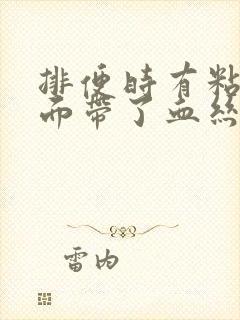 排便時有粘
而帶了血絲
雷内